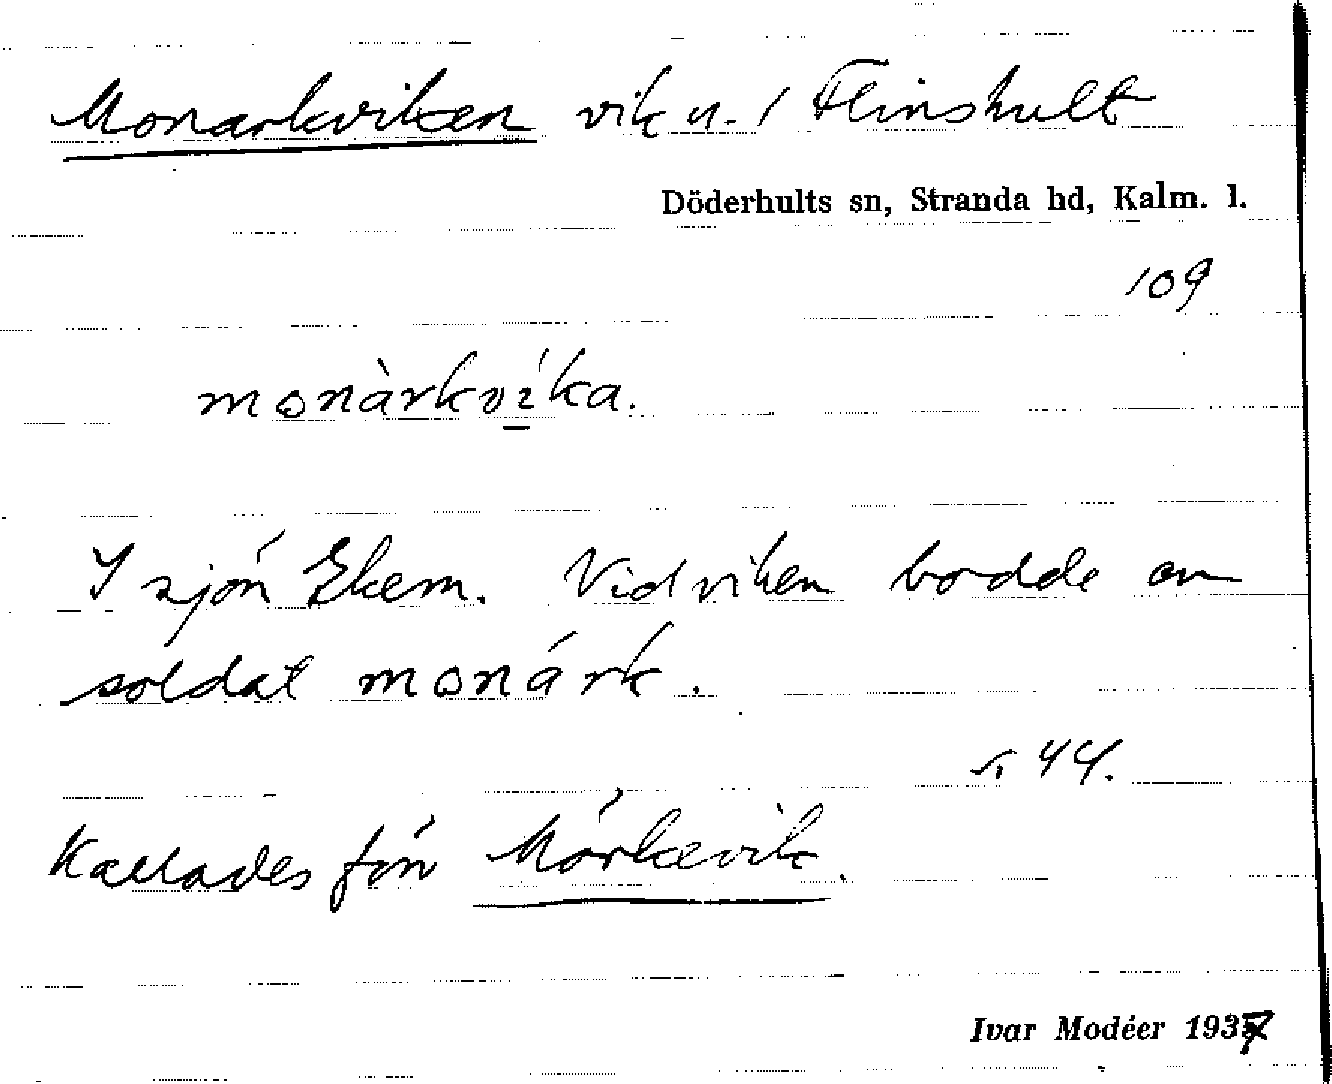 Monarkviken vik u. / Flinshult
Döderhults sn, Stranda hd, Kalm. l.
109
monàrkvíka.
I sjön Ekem. Vid viken bodde en
soldat monárk.
44.
Kallades förr Mörkevik.
Ivar Modéer 1937